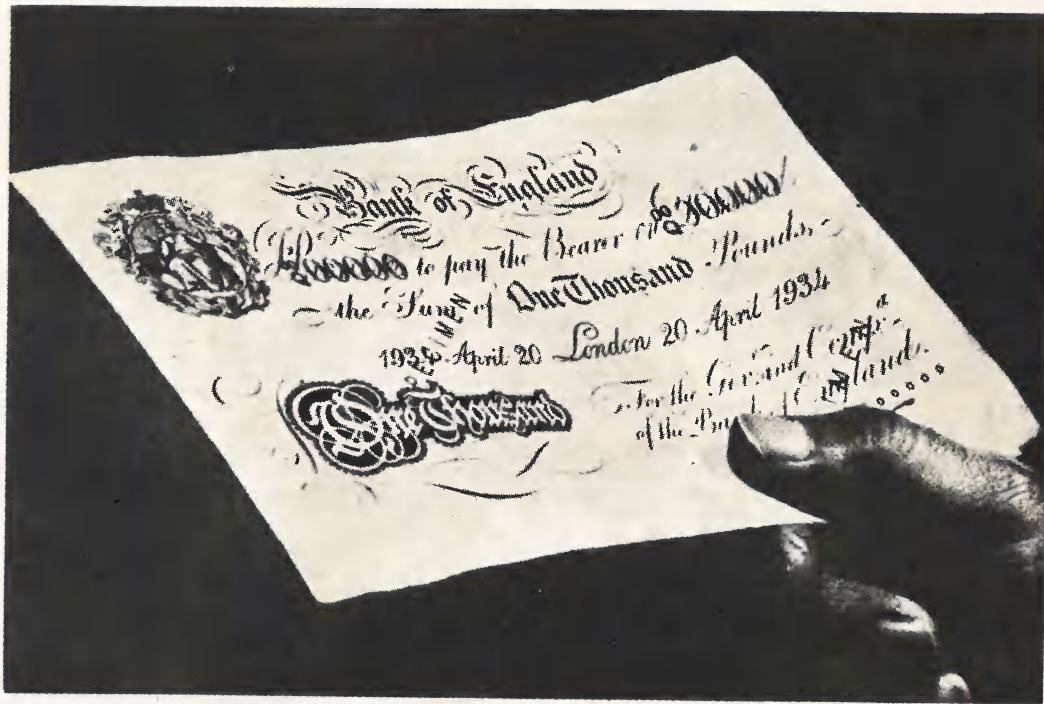 Bank of England
to pay the Bearer on
the Sum of One Thousand Pounds.
1934 April 20 London 20 April 1934
For the Gov: and Comp:a
One Thousand
of the England.